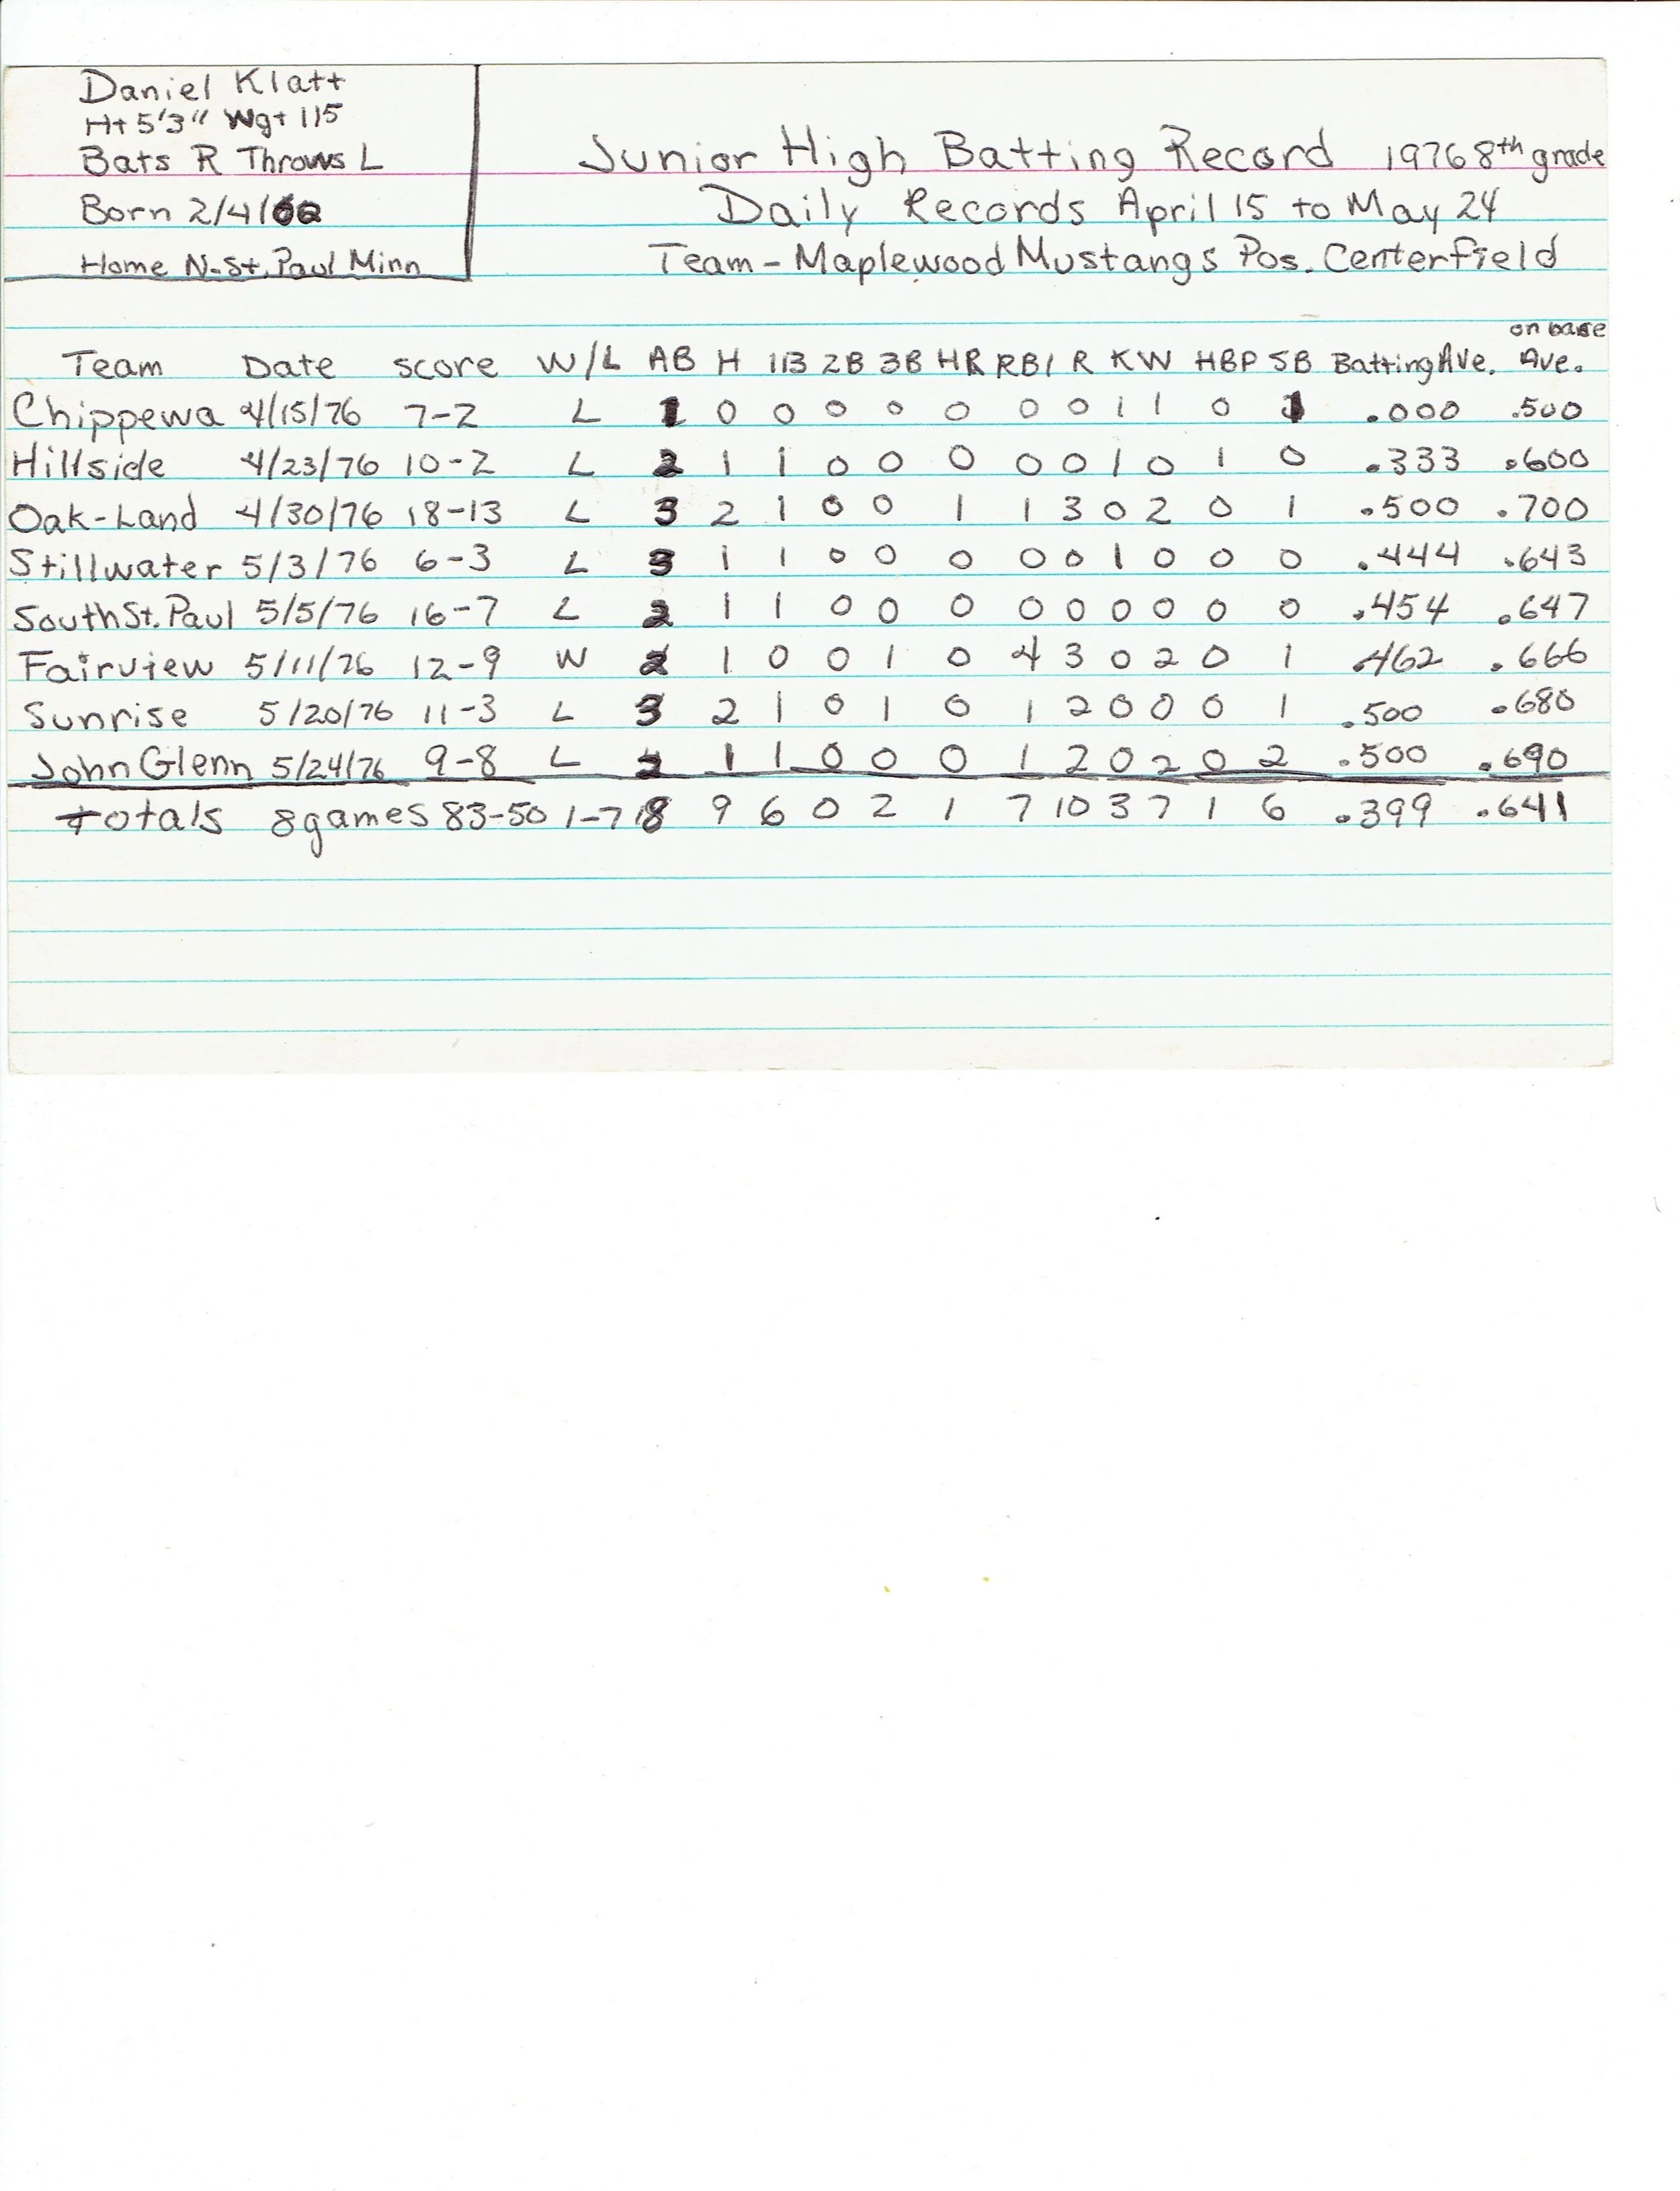 Daniel Klatt
Ht 5'3" Wgt 115
Bats R Throws L
Born 2/4/
Home N. St. Paul Minn
Junior High Batting Record 1976 8th grade
Daily Records April 15 to May 24
Team - Maplewood Mustangs Pos. Centerfield
Team Date score W/L AB H 1B 2B 3B HR RBI R K W HBP SB Batting Ave. on base Ave.
Chippewa 4/15/76 7-2 L 1 0 0 0 0 0 0 0 1 1 0 1 .000 .500
Hillside 4/23/76 10-2 L 2 1 1 0 0 0 0 0 1 0 1 0 .333 .600
Oak-Land 4/30/76 18-13 L 3 2 1 0 0 1 1 3 0 2 0 1 .500 .700
Stillwater 5/3/76 6-3 L 3 1 1 0 0 0 0 0 1 0 0 0 .444 .643
South St. Paul 5/5/76 16-7 L 2 1 1 0 0 0 0 0 0 0 0 0 .454 .647
Fairview 5/11/76 12-9 W 2 1 0 0 1 0 4 3 0 2 0 1 .462 .666
Sunrise 5/20/76 11-3 L 3 2 1 0 1 0 1 2 0 0 0 1 .500 .680
John Glenn 5/24/76 9-8 L 2 1 1 0 0 0 1 2 0 2 0 2 .500 .690
Totals 8 games 83-50 1-7 18 9 6 0 2 1 7 10 3 7 1 6 .399 .641